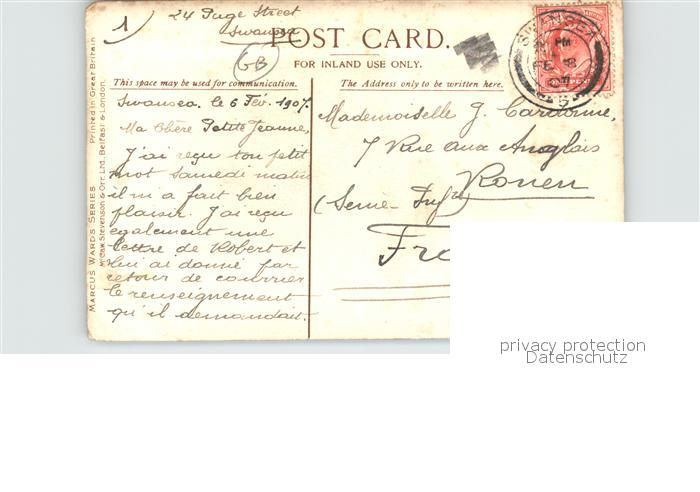 1
24 Page Street
Swansea
POST CARD.
GB
FOR INLAND USE ONLY.
SWANSEA
PM
FE
This space may be used for communication.
The Address only to be written here.
Swansea. le 6 Fév. 1907.
Ma Chère Petite Jeanne,
J'ai reçu ton petit
mot samedi matin
il m'a fait bien
plaisir. J'ai reçu
également une
lettre de Robert et
lui ai donné par
retour de courrier
le renseignement
qu'il demandait.
Mademoiselle J. Cardonne,
7 Rue aux Anglais
Rouen
(Seine-Infre)
Fra
MARCUS WARD'S SERIES
McCaw, Stevenson & Orr, Ltd., Belfast & London.
Printed in Great Britain
privacy protection
Datenschutz